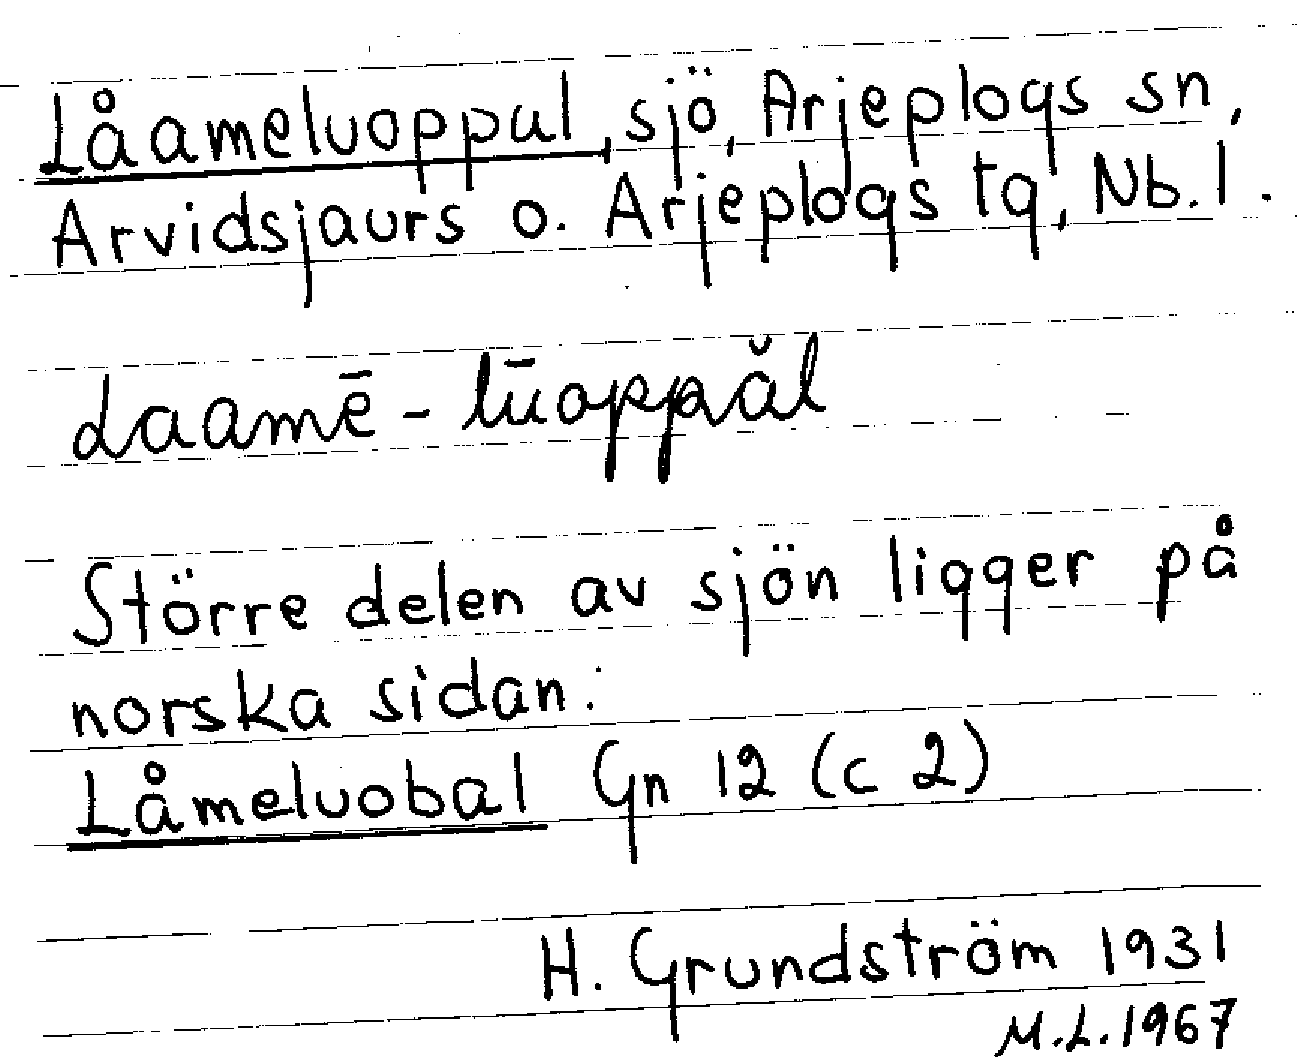 Låameluoppul, sjö, Arjeplogs sn,
Arvidsjaurs o. Arjeplogs tg, Nb. l.
Laamē - lūoppăl
Större delen av sjön ligger på
norska sidan:
Låmeluobal Gn 12 (c 2)
H. Grundström 1931
M.L. 1967